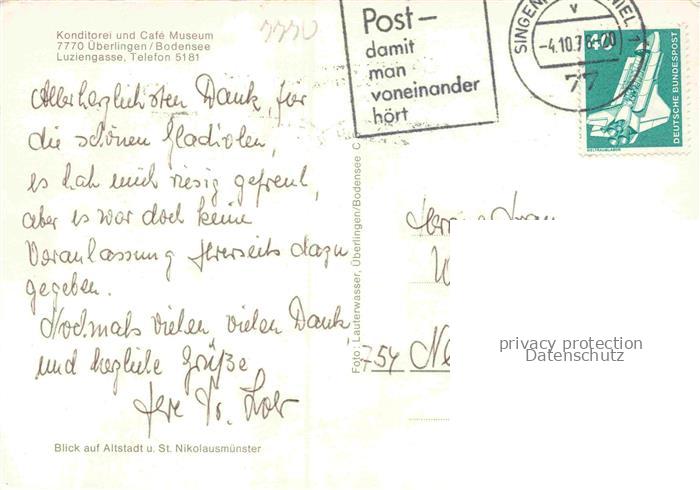 Konditorei und Café Museum
7770 Überlingen/Bodensee
Luziengasse, Telefon 5181
7770
Post-
damit
man
voneinander
hört
SINGEN
v
-4.10.7
77
40
DEUTSCHE BUNDESPOST
WELTRAUMLABOR
Allerherzlichsten Dank, für
die schönen Gladiolen,
es hat mich riesig gefreut,
aber es war doch keine
Veranlassung Ihrerseits dazu
gegeben.
Nochmals vielen vielen Dank,
und herzliche Grüße
Ihre Fr.
Foto: Lauterwasser, Überlingen/Bodensee
Herrn u. Frau
W
754 Ne
privacy protection
Datenschutz
Blick auf Altstadt u. St. Nikolausmünster